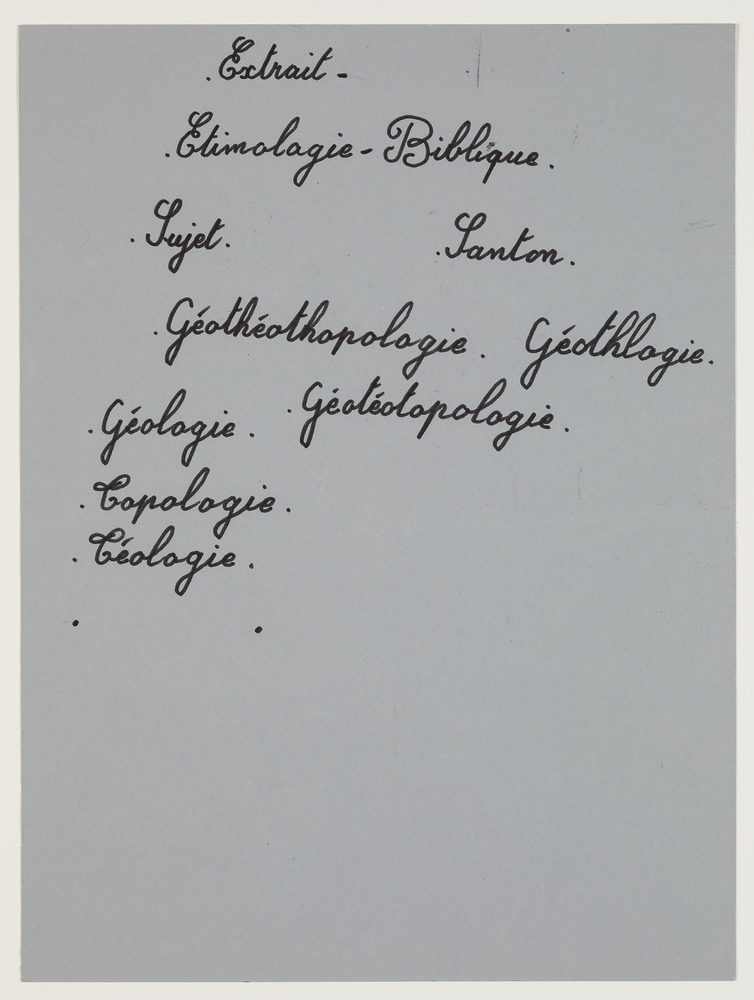 . Extrait -
. Etimologie - Biblique .
. Sujet . . Santon .
. Géothéothopologie . Géothlogie .
. Géologie . . Géotéotopologie .
. Topologie .
. Téologie .
. .